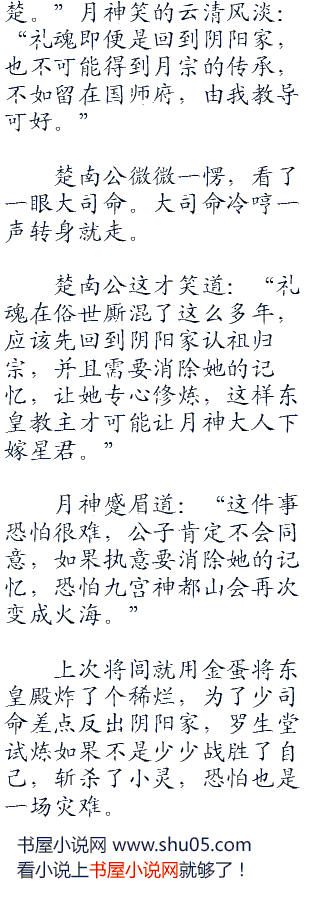 楚。”月神笑的云清风淡：
“礼魂即便是回到阴阳家，
也不可能得到月宗的传承，
不如留在国师府，由我教导
可好。”
楚南公微微一愣，看了
一眼大司命。大司命冷哼一
声转身就走。
楚南公这才笑道：“礼
魂在俗世厮混了这么多年，
应该先回到阴阳家认祖归
宗，并且需要消除她的记
忆，让她专心修炼，这样东
皇教主才可能让月神大人下
嫁星君。”
月神蹙眉道：“这件事
恐怕很难，公子肯定不会同
意，如果执意要消除她的记
忆，恐怕九宫神都山会再次
变成火海。”
上次将闾就用金蛋将东
皇殿炸了个稀烂，为了少司
命差点反出阴阳家，罗生堂
试炼如果不是少少战胜了自
己，斩杀了小灵，恐怕也是
一场灾难。
书屋小说网 www.shu05.com
看小说上书屋小说网就够了！